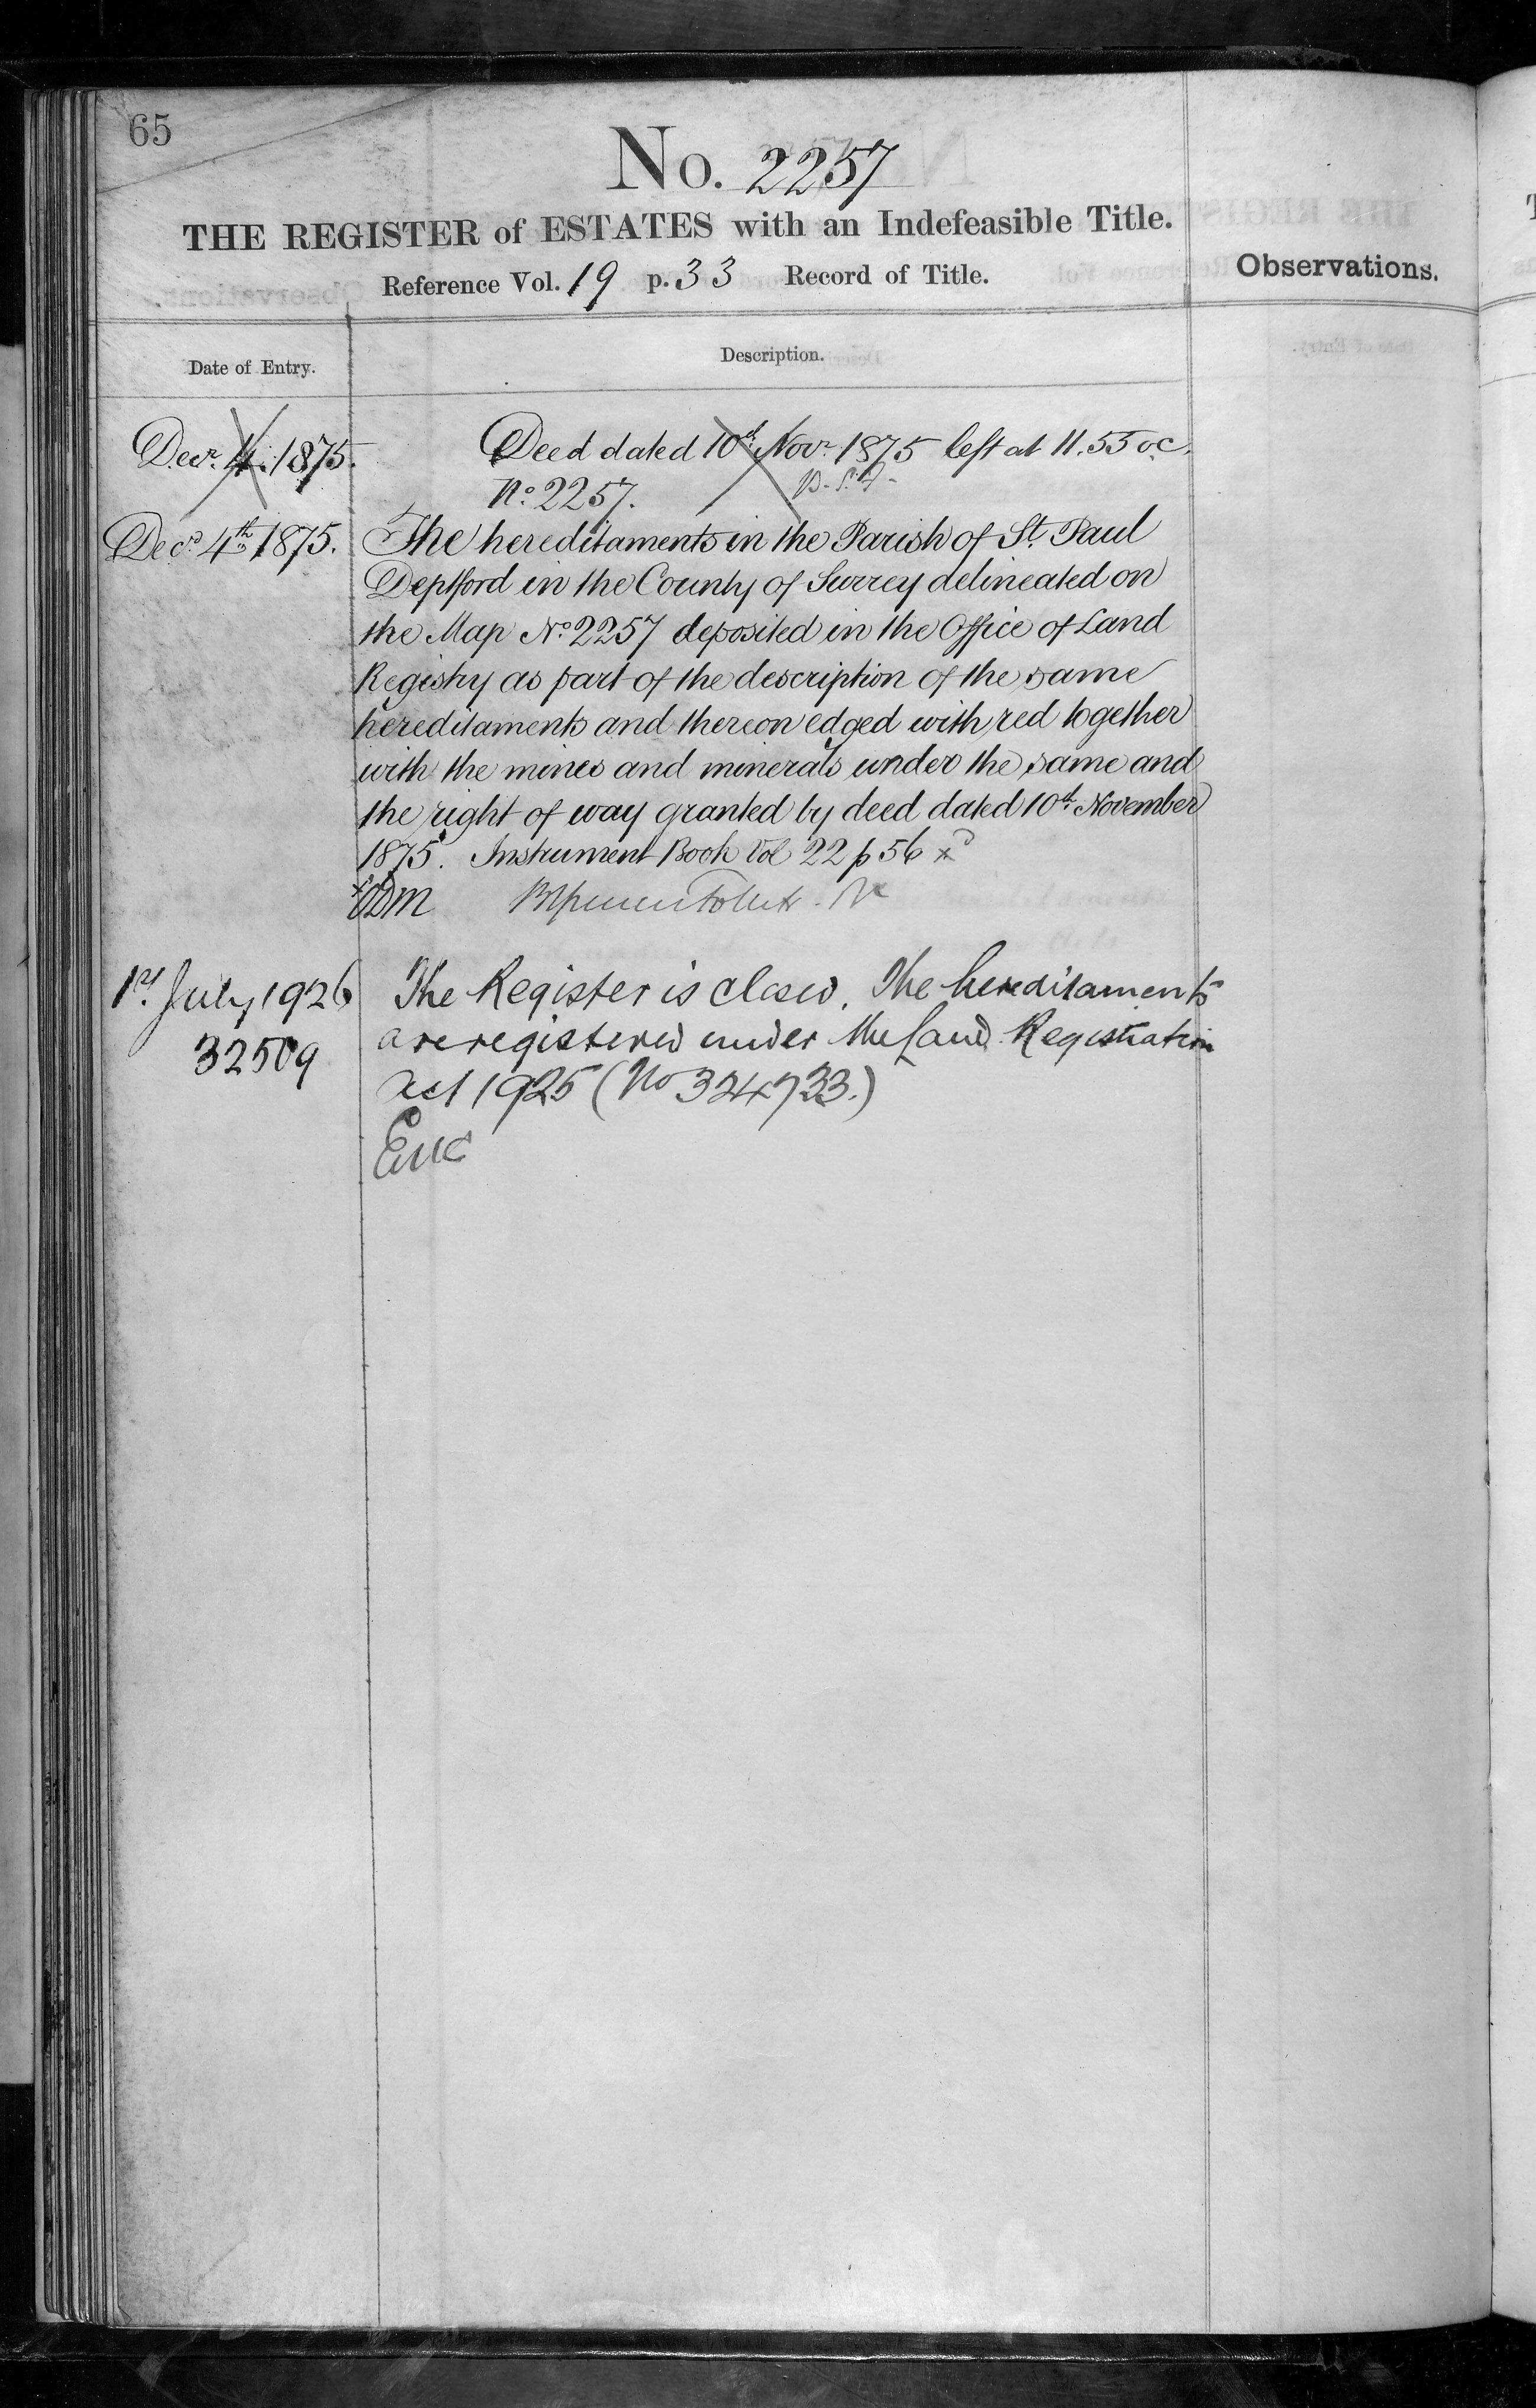 65
No. 2257
THE REGISTER of ESTATES with an Indefeasible Title.
Reference Vol. 19 p. 33 Record of Title.
Observations.
Date of Entry.
Description.
Decr. 4. 1875.
Deed dated 10th Novr 1875 left at 11.55 oc.
No. 2257.
Decr 4th 1875.
The hereditaments in the Parish of St. Paul
Deptford in the County of Surrey delineated on
the Map No. 2257 deposited in the Office of Land
Registry as part of the description of the same
hereditaments and thereon edged with red together
with the mines and minerals under the same and
the right of way granted by deed dated 10th November
1875. Instrument Book Vol 22 p 56 x
1st July 1926
32509
The Register is closed. The hereditaments
are registered under the Land Registration
Act 1925 (No 324733.)